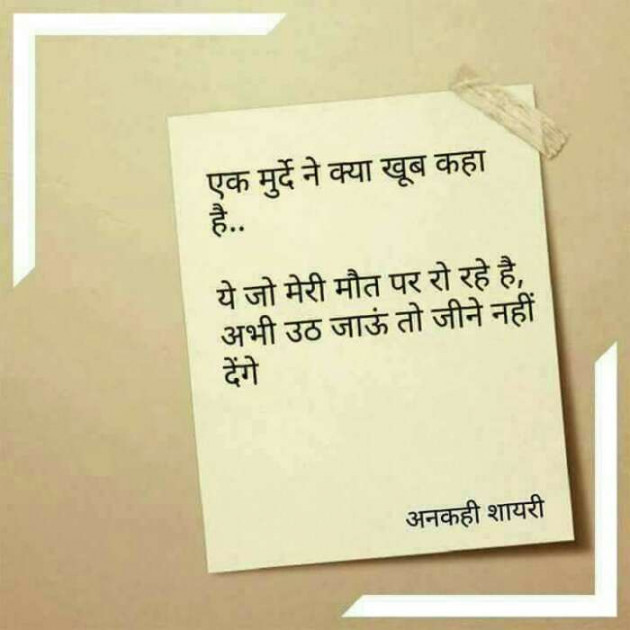 एक मुर्दे ने क्या खूब कहा
है..
ये जो मेरी मौत पर रो रहे है,
अभी उठ जाऊं तो जीने नहीं
देंगे
अनकही शायरी